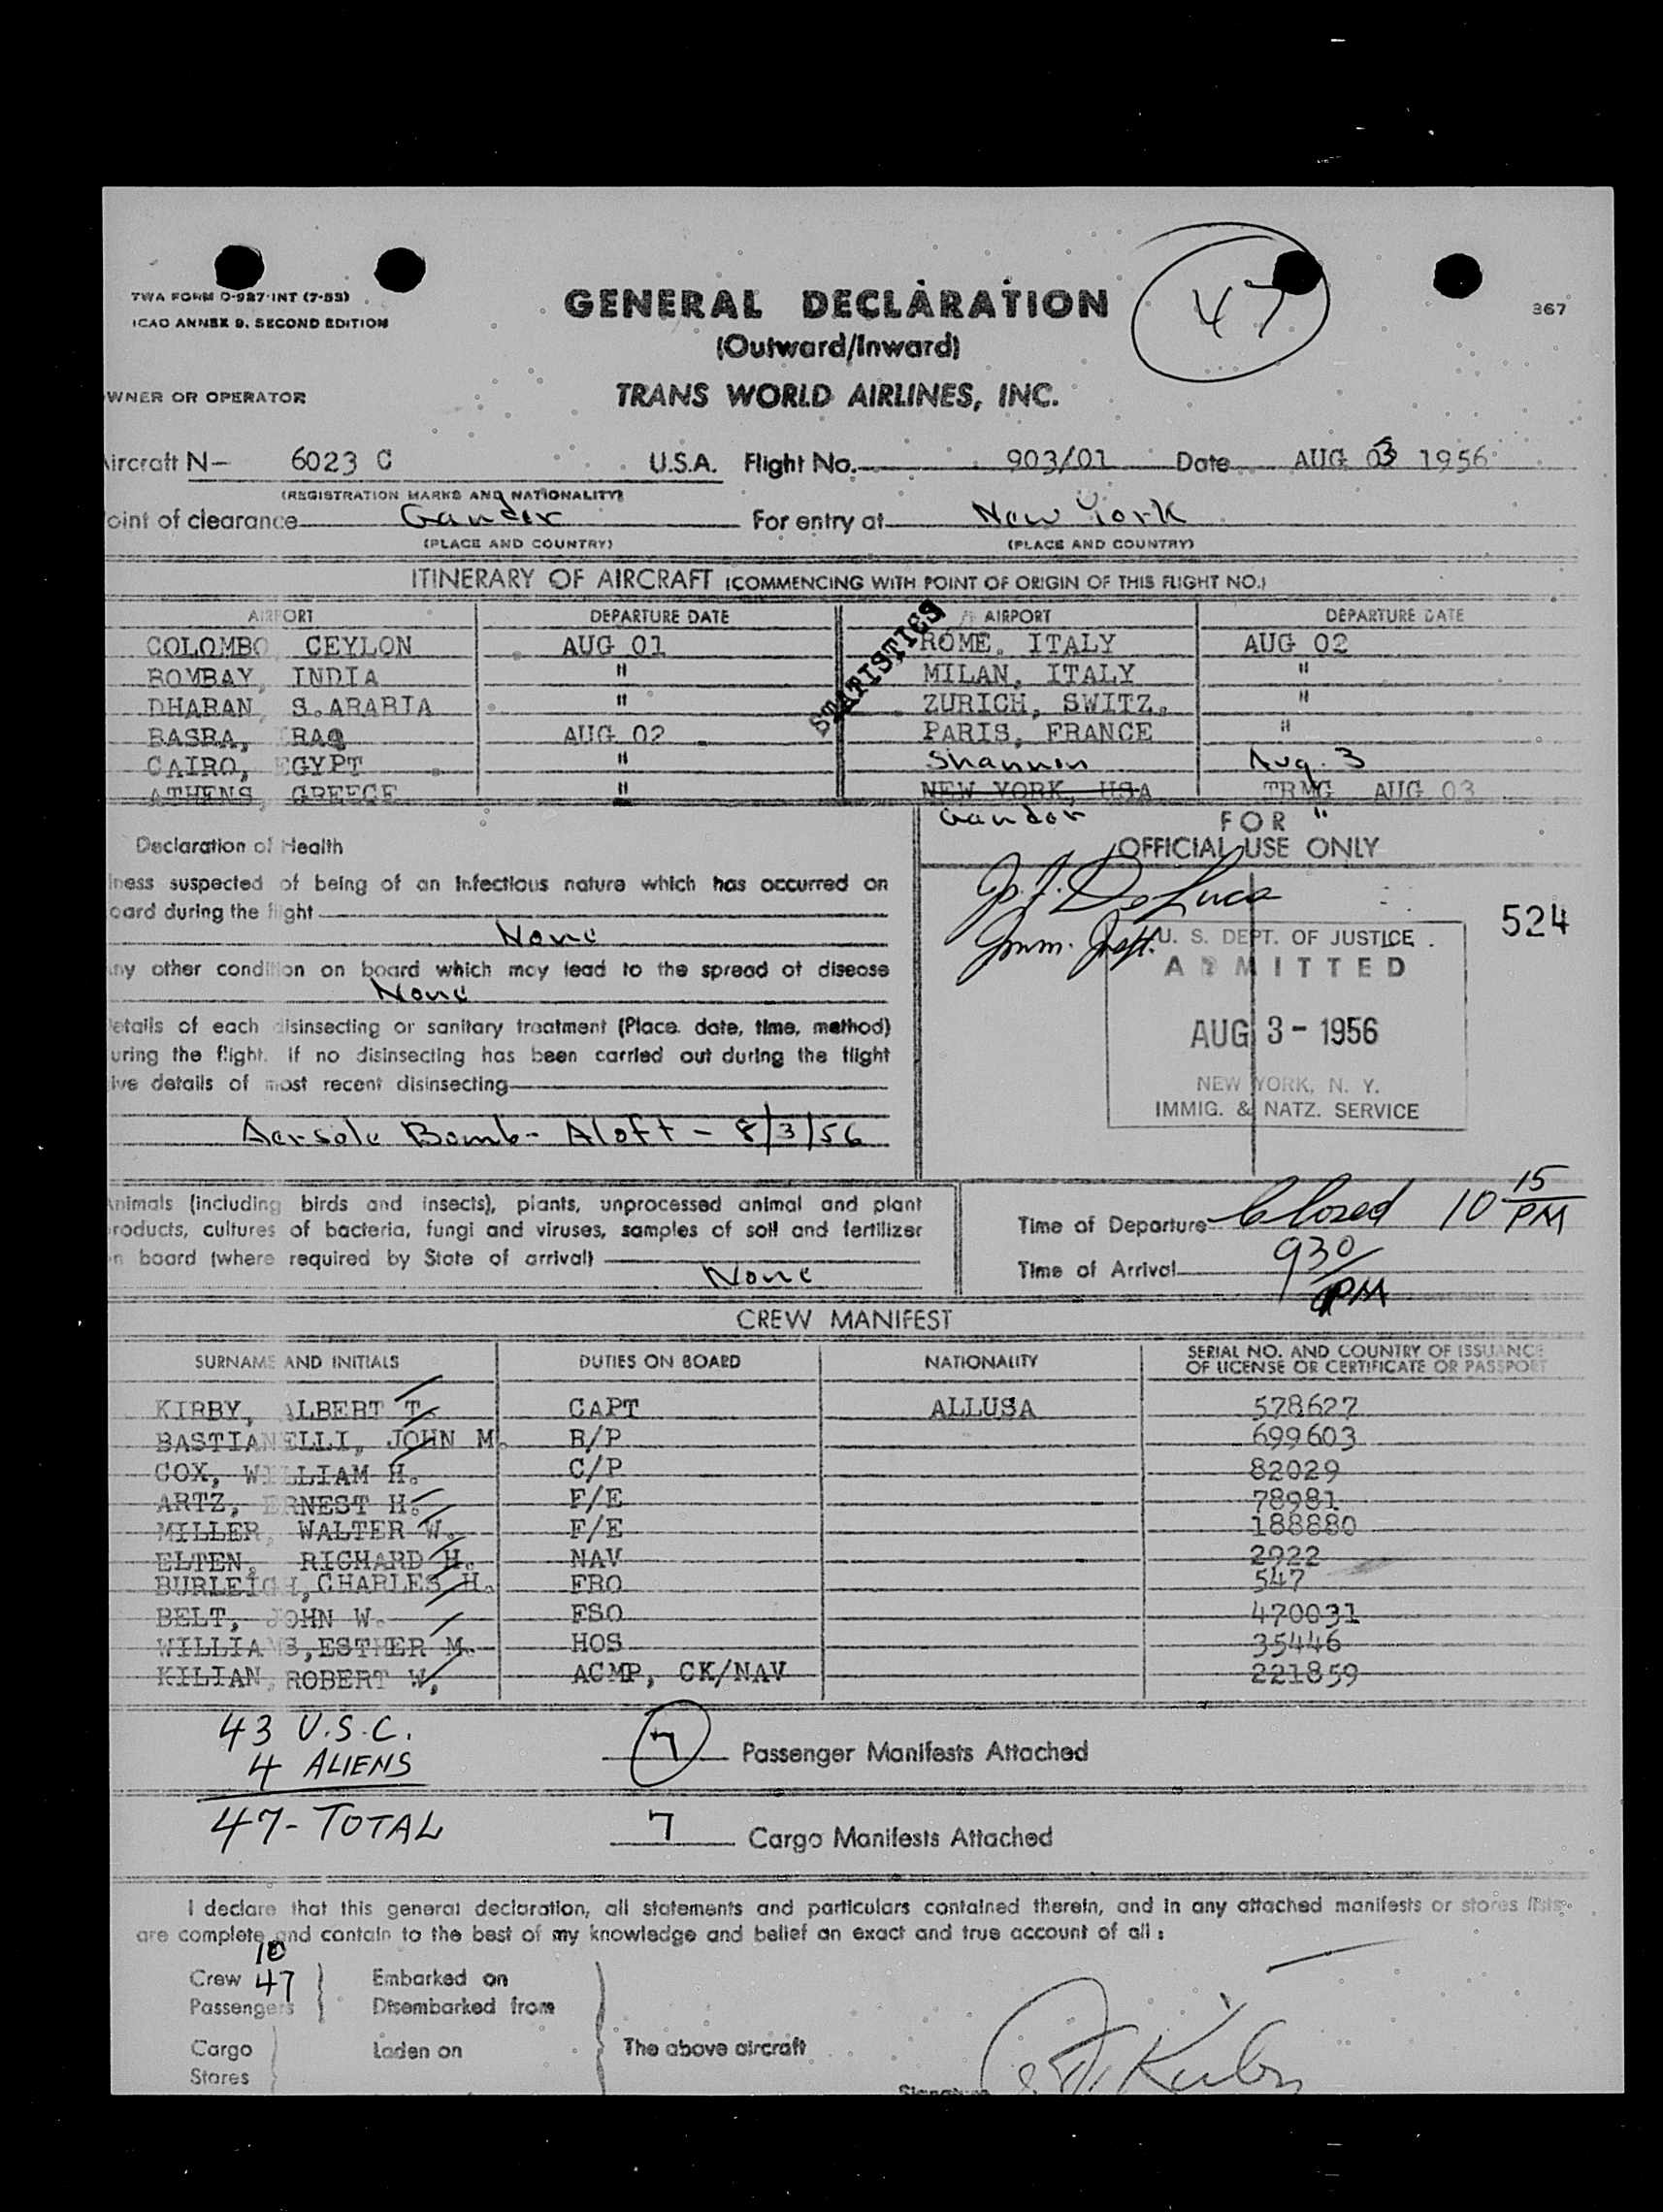 TWA FORM O-927-INT (7-53)
ICAO ANNEX 9, SECOND EDITION
GENERAL DECLARATION
47
367
(Outward/Inward)
WNER OR OPERATOR
TRANS WORLD AIRLINES, INC.
ircraft N- 6023 C U.S.A. Flight No. 903/01 Date AUG 03 1956
(REGISTRATION MARKS AND NATIONALITY)
oint of clearance Gander For entry at New York
(PLACE AND COUNTRY) (PLACE AND COUNTRY)
ITINERARY OF AIRCRAFT (COMMENCING WITH POINT OF ORIGIN OF THIS FLIGHT NO.)
AIRPORT DEPARTURE DATE AIRPORT DEPARTURE DATE
STATISTICS
COLOMBO CEYLON AUG 01 ROME, ITALY AUG 02
BOMBAY, INDIA " MILAN, ITALY "
DHARAN, S.ARABIA " ZURICH, SWITZ. "
BASRA, IRAQ AUG 02 PARIS, FRANCE "
CAIRO, EGYPT " Shannon Aug. 3
ATHENS, GREECE " NEW YORK, USA TRMG AUG 03
Gander "
FOR
OFFICIAL USE ONLY
Declaration of Health
lness suspected of being of an infectious nature which has occurred on
oard during the flight
None
ny other condition on board which may lead to the spread of disease
None
etails of each disinsecting or sanitary treatment (Place, date, time, method)
uring the flight. If no disinsecting has been carried out during the flight
ive details of most recent disinsecting
Aersole Bomb - Aloft - 8/3/56
DeLuca
Imm. Inspt.
524
U. S. DEPT. OF JUSTICE
ADMITTED
AUG 3 - 1956
NEW YORK, N. Y.
IMMIG. & NATZ. SERVICE
nimals (including birds and insects), plants, unprocessed animal and plant
roducts, cultures of bacteria, fungi and viruses, samples of soil and fertilizer
n board (where required by State of arrival)
None
Time of Departure Closed 10 15 PM
Time of Arrival 930 PM
CREW MANIFEST
SURNAME AND INITIALS DUTIES ON BOARD NATIONALITY SERIAL NO. AND COUNTRY OF ISSUANCE
OF LICENSE OR CERTIFICATE OR PASSPORT
KIRBY, ALBERT T. CAPT ALLUSA 578627
BASTIANELLI, JOHN M. R/P 699603
COX, WILLIAM H. C/P 82029
ARTZ, ERNEST H. F/E 78981
MILLER, WALTER W. F/E 188880
ELTEN, RICHARD H. NAV 2922
BURLEIGH, CHARLES H. FRO 547
BELT, JOHN W. FSO 470031
WILLIAMS, ESTHER M. HOS 35446
KILIAN, ROBERT W. ACMP, CK/NAV 221859
43 U.S.C.
4 ALIENS
47 - TOTAL
7 Passenger Manifests Attached
7 Cargo Manifests Attached
I declare that this general declaration, all statements and particulars contained therein, and in any attached manifests or stores lists
are complete and contain to the best of my knowledge and belief an exact and true account of all :
Crew 10
Passengers 47
Embarked on
Disembarked from
Cargo
Stores
Laden on
The above aircraft
Signature Kirby